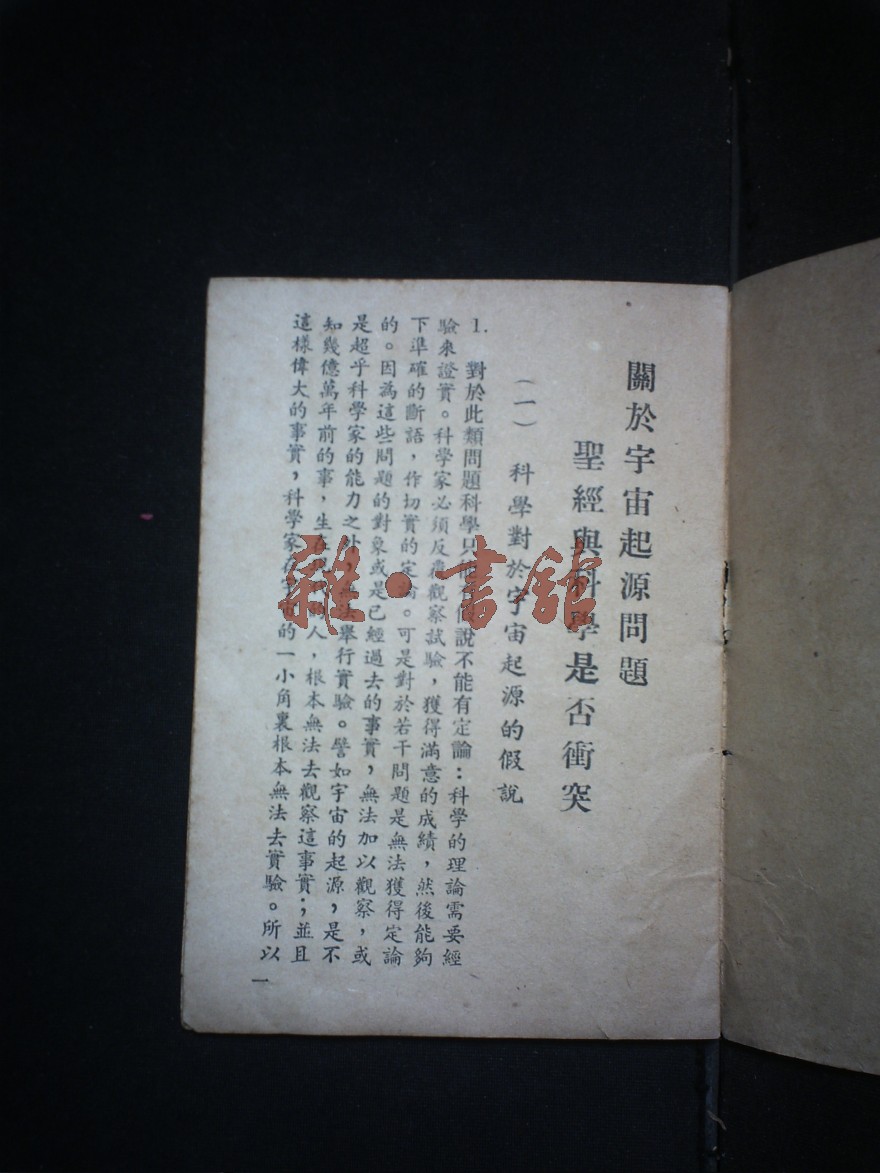 關於宇宙起源問題
聖經與科學是否衝突
(一) 科學對於宇宙起源的假說
1. 對於此類問題科學只能 說不能有定論：科學的理論需要經
驗來證實。科學家必須反覆觀察試驗，獲得滿意的成績，然後能夠
下準確的斷語，作切實的定論。可是對於若干問題是無法獲得定論
的。因為這些問題的對象或是已經過去的事實，無法加以觀察，或
是超乎科學家的能力之外，無法舉行實驗。譬如宇宙的起源，是不
知幾億萬年前的事，生在 人，根本無法去觀察這事實；並且
這樣偉大的事實，科學家在宇宙的一小角裏根本無法去實驗。所以
一
雜·書館